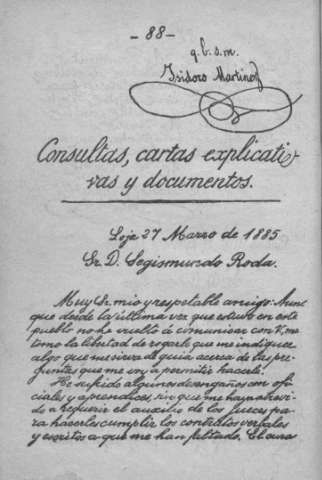 - 88 -
q. b. s. m.
Isidoro Martinez
Consultas, cartas explicati-
vas y documentos.
Loja 27 Marzo de 1885
Sr. D. Segismundo Roda.
Muy Sr. mio y respetable amigo: Aunque
que desde la última vez que estuvo en este
pueblo no he vuelto á comunicar con V., me
tomo la libertad de rogarle que me indique
algo que me sirva de guía acerca de las pre-
guntas que me voy á permitir hacerle.
He sufrido algunos desengaños con ofi-
ciales y aprendices, sin que me haya atrevi-
do a requerir el auxilio de los jueces pa-
ra hacerles cumplir los contratos verbales
y escritos a que me han faltado. El aura